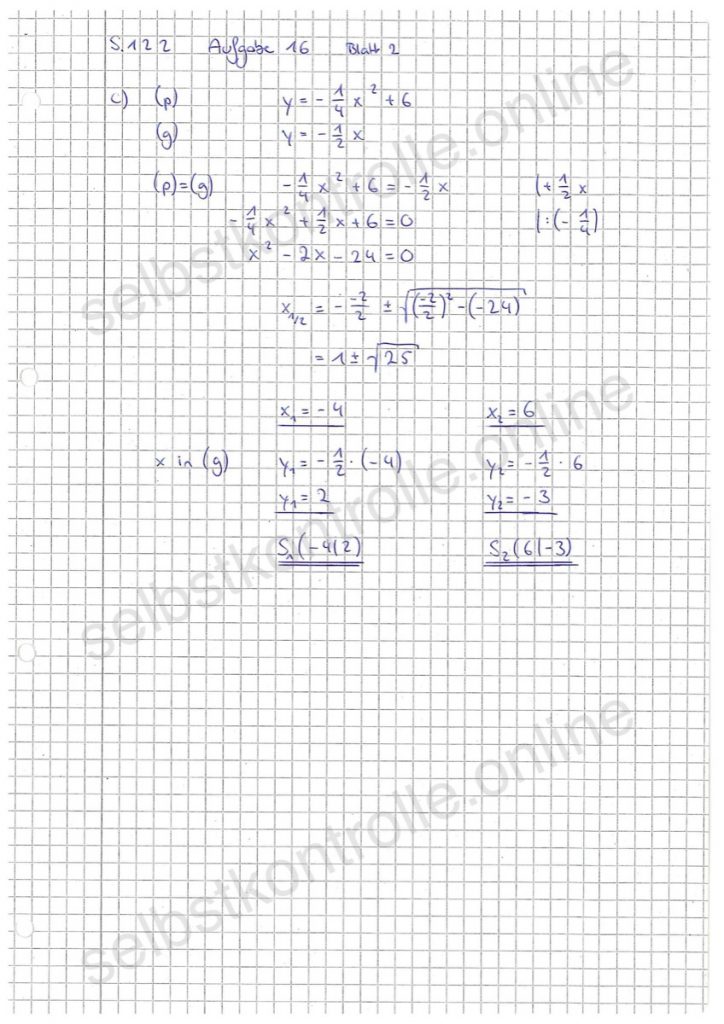 S.122 Aufgabe 16 Blatt 2
c) (p) y = -1/4 x² + 6
(g) y = -1/2 x
(p)=(g) -1/4 x² + 6 = -1/2 x |+ 1/2 x
-1/4 x² + 1/2 x + 6 = 0 |:(-1/4)
x² - 2x - 24 = 0
x1/2 = - -2/2 ± √((-2/2)² - (-24))
= 1 ± √25
x₁ = -4 x₂ = 6
x in (g) y₁ = -1/2 · (-4) y₂ = -1/2 · 6
y₁ = 2 y₂ = -3
S₁(-4|2) S₂(6|-3)
selbstkontrolle.online
selbstkontrolle.online
selbstkontrolle.online